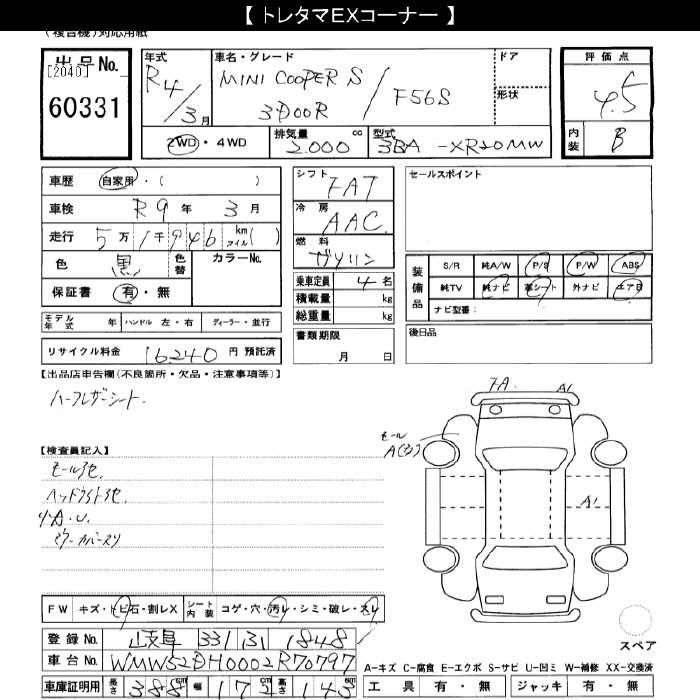 【 トレタマEXコーナー 】
(複合機)対応用紙
出品No.
[2040]
60331
年式
R4/3月
車名・グレード
MINI COOPER S / F56S
3DOOR
ドア
形状
評価点
4.5
内装
B
2WD・4WD
排気量
2.000 cc
型式
3BA-XR20MW
車歴 自家用・( )
車検 R9年 3月
走行 5万1千946 km マイル( )
色 黒 色替 カラーNo.
保証書 有・無
モデル年式 年 ハンドル 左・右 ディーラー・並行
リサイクル料金 16240 円 預託済
シフト
FAT
冷房
AAC
燃料
ガソリン
乗車定員 4名
積載量 kg
総重量 kg
書類期限
月 日
セールスポイント
装備品
S/R 純A/W P/S P/W ABS
純TV 純ナビ 革シート 外ナビ エアB
ナビ型番:
後日品
【出品店申告欄(不良箇所・欠品・注意事項等)】
ハーフレザーシート.
【検査員記入】
モールアセ
ヘッドライトアセ
ミラーカバースリ
7A. A1
モール
A1
FW キズ・トビ石・割レX シート内装 コゲ・穴・汚レ・シミ・破レ・スレ
登録No. 岐阜 331 31 1848
車台No. WMW52DH0002R70797
車庫証明用 長さ 388cm 幅 172cm 高さ 143cm
スペア
A-キズ C-腐食 E-エクボ S-サビ U-凹ミ W-補修 XX-交換済
工具 有・無 ジャッキ 有・無